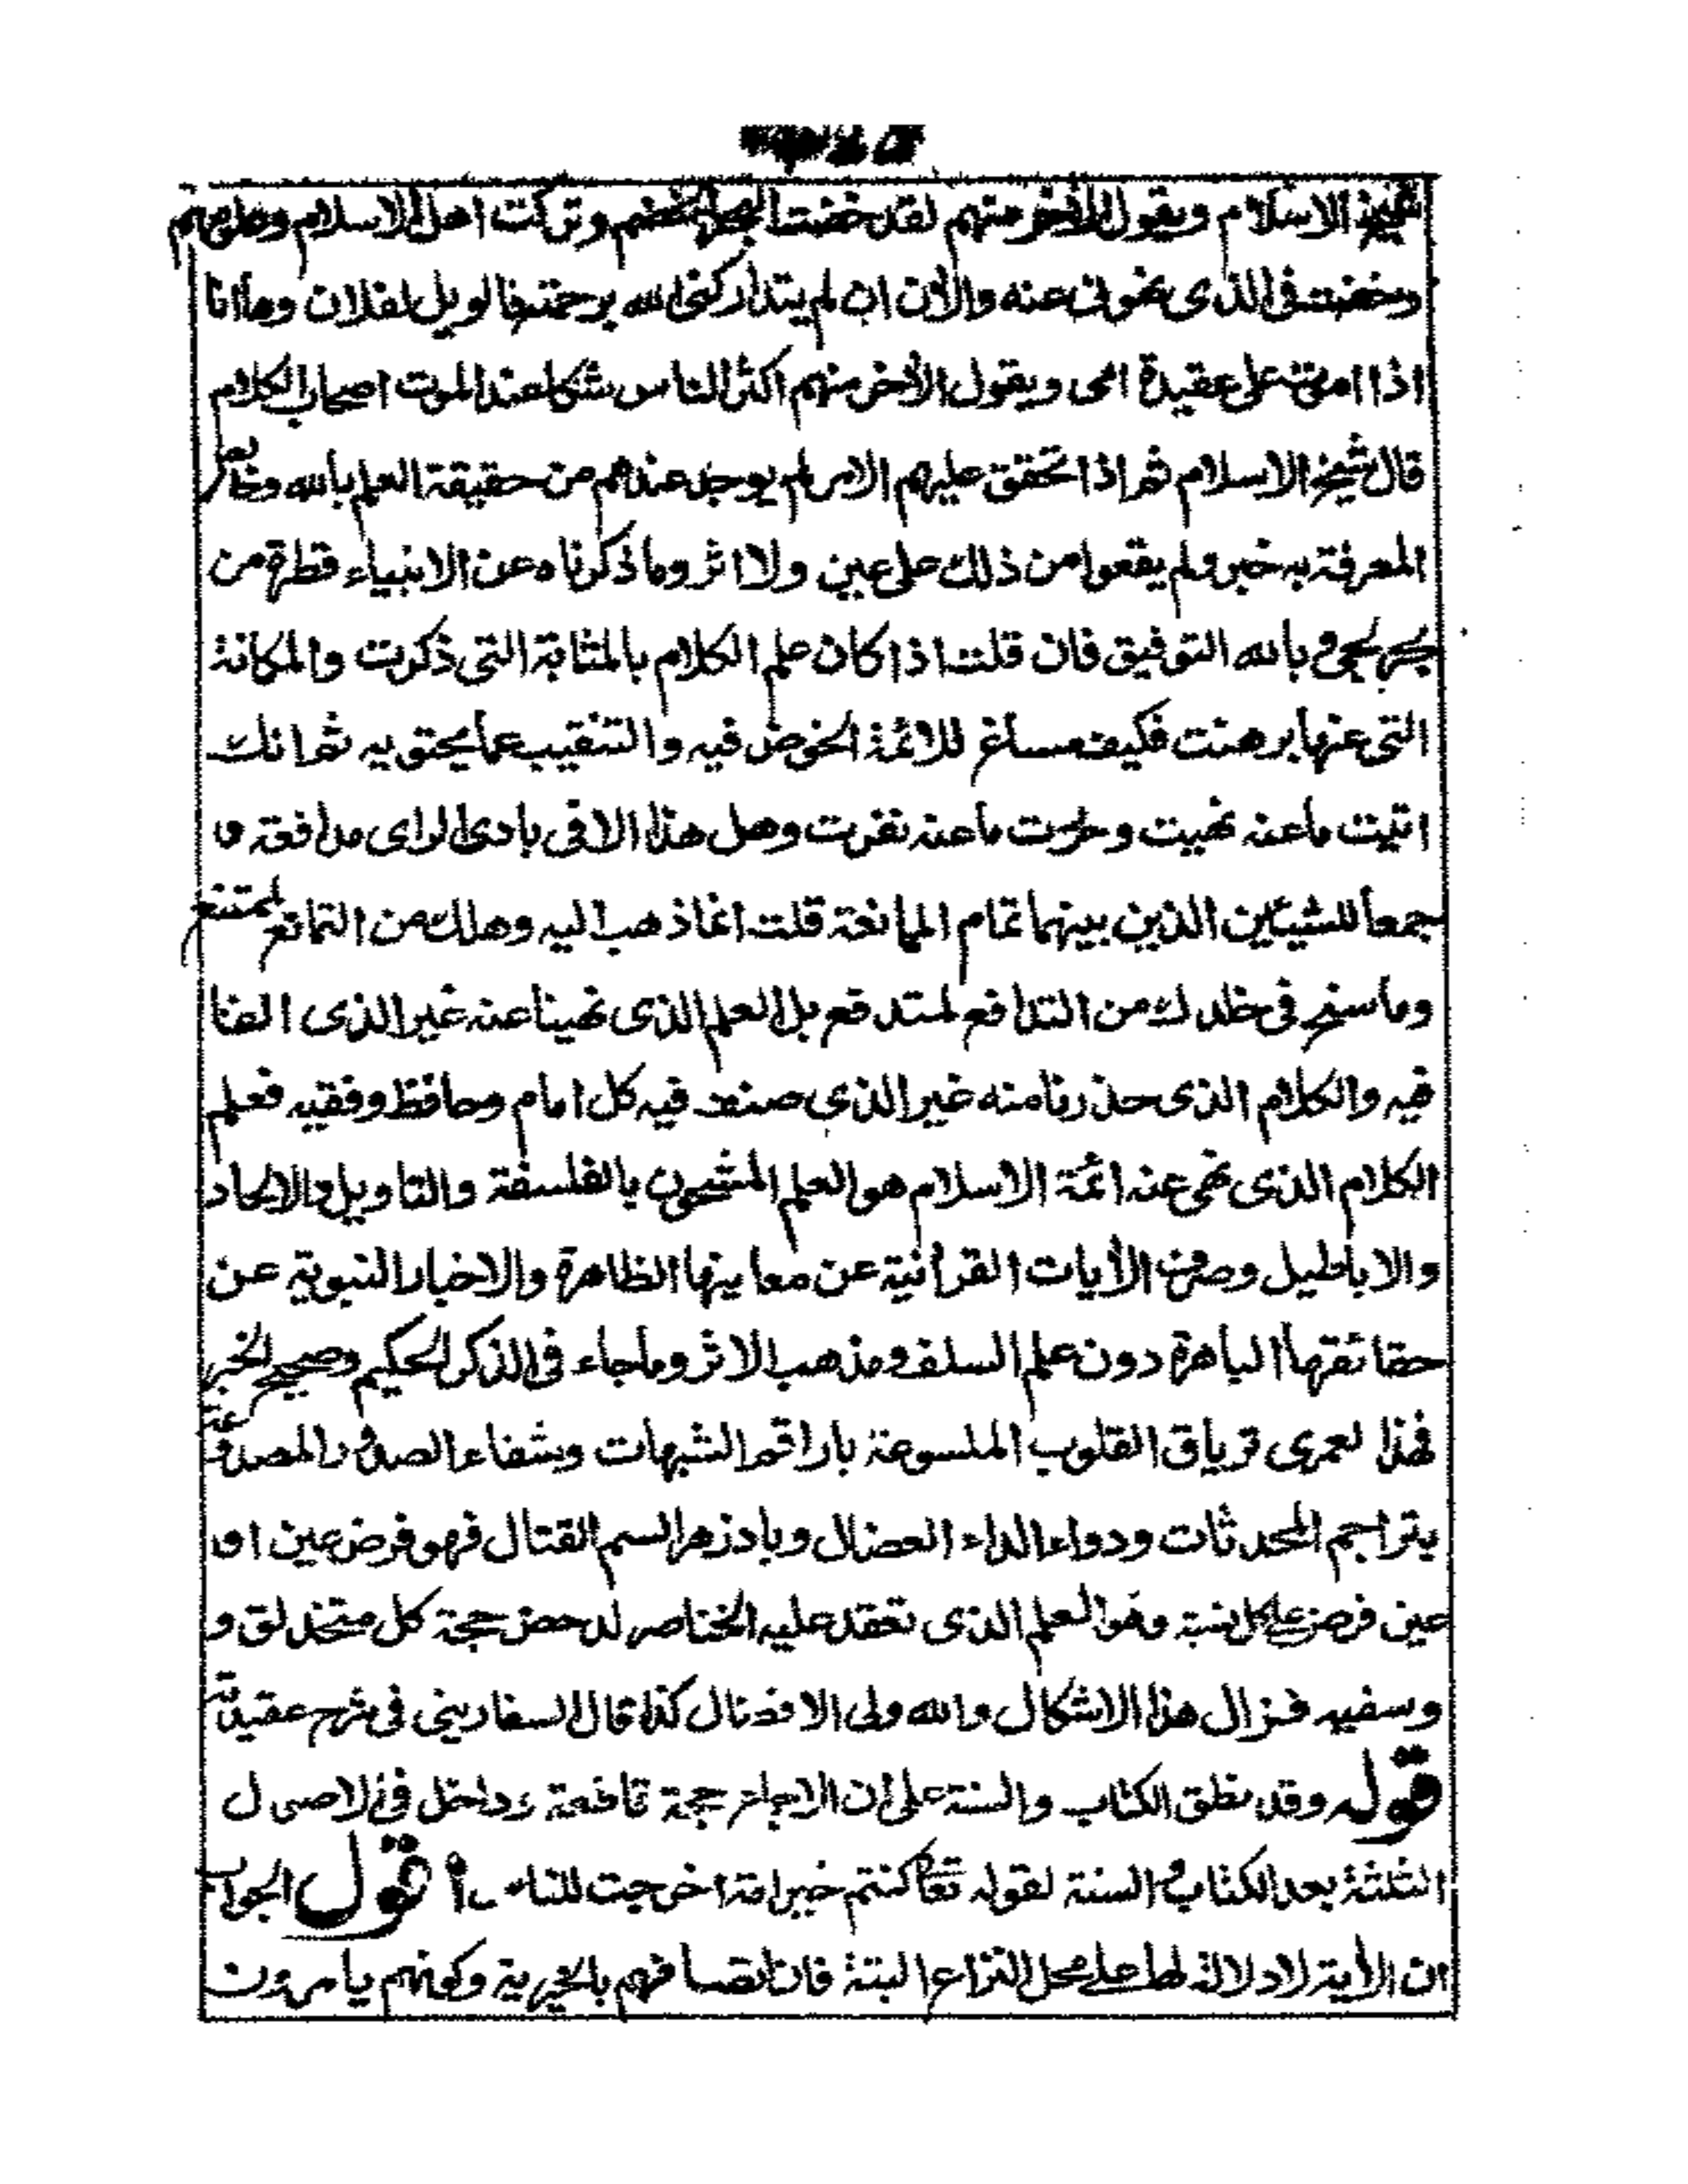 شيخ الاسلام ويقول الأخر منهم لقد خضت البحر الخضم وتركت اهل الاسلام وعلومهم
وخضت فى الذى نهونى عنه والأن ان لم يتداركنى الله برحمته فالويل لفلان وها انا
اذا اموت على عقيدة امى ويقول الأخر منهم اكثر الناس شكا عند الموت اصحاب الكلام
قال شيخ الاسلام ثم اذا تحقق عليهم الامر لم يوجد عندهم من حقيقة العلم بالله وخالص
المعرفة به خبر ولم يقعوا من ذلك على عين ولا اثر وما ذكرناه عن الانبياء قطرة من
بحر لجى وبالله التوفيق فان قلت اذا كان علم الكلام بالمثابة التى ذكرت والمكانة
التى عنها برهنت فكيف مساغ للائمة الخوض فيه والتنقيب عما يحتويه ثم انك
اتيت ما عنه نهيت وحررت ما عنه نفرت وهل هذا الا فى بادى الراى مدافعة و
جمعا للشيئين الذين بينهما تمام الممانعة قلت انما ذهب اليه وهلك من التمانع لممتنع
وما سنح فى خلدك من التدافع لمتدفع بل العلم الذى نهينا عنه غير الذى الفنا
فيه والكلام الذى حذرنا منه غير الذى صنف فيه كل امام وحافظ وفقيه فعلم
الكلام الذى نهى عنه ائمة الاسلام هو العلم المشحون بالفلسفة والتاويل والالحاد
والاباطيل وصرف الأيات القرأنية عن معانيها الظاهرة والاخبار النبوية عن
حقائقها الباهرة دون علم السلف ومذهب الاثر وما جاء فى الذكر الحكيم وصحيح الخبر
فهذا لعمرى ترياق القلوب الملسوعة باراقم الشبهات وشفاء الصدور المصدوعة
بتراجم المحدثات ودواء الداء العضال وبادزهر السم القتال فهو فرض عين او
عين فرض على كل نبيه وهو العلم الذى تعقد عليه الخناصر لدحض حجة كل متحذلق و
وسفيه فزال هذا الاشكال والله ولى الافضال كذا قال السفارينى فى شرح عقيدته
قوله وقد نطق الكتاب والسنة على ان الاجماع حجة قاطعة وداخل فى الاصول
الثلثة بعد الكتاب والسنة لقوله تعا كنتم خير امة اخرجت للناس اقول الجواب
ان الأية لا دلالة لها على محل النزاع البتة فان اتصافهم بالخيرية وكونهم يامرون